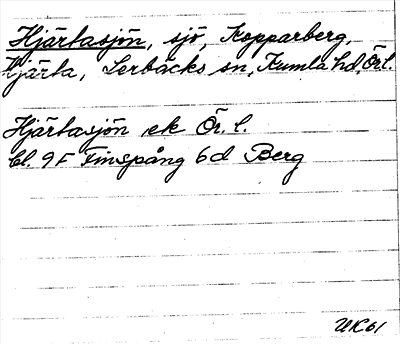 Hjärtasjön, sjö, Kopparberg,
Hjärta, Lerbäcks sn, Kumla hd, Örl.
Hjärtasjön ek Ör. l.
bl. 9F Finspång 6d Berg
UK61